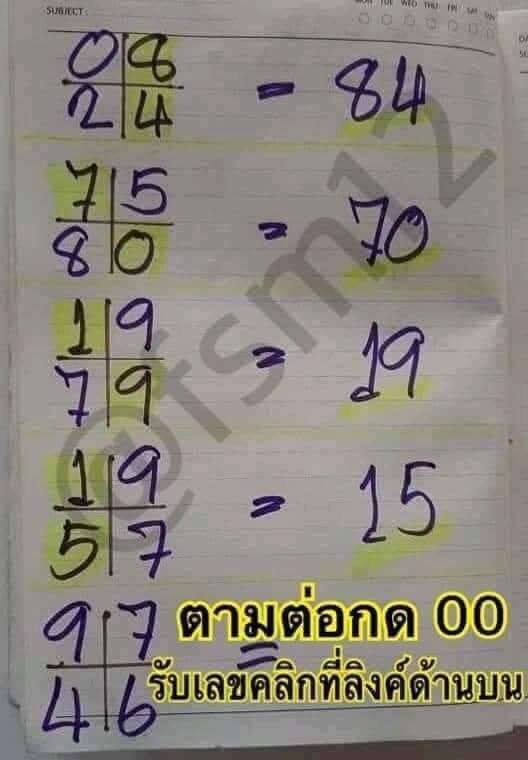 SUBJECT :
MON TUE WED THU FRI SAT SUN
0 8
2 4
= 84
7 5
8 0
= 70
1 9
7 9
= 19
1 9
5 7
= 15
9 7
4 6
=
@fsm12
ตามต่อกด 00
รับเลขคลิกที่ลิงค์ด้านบน